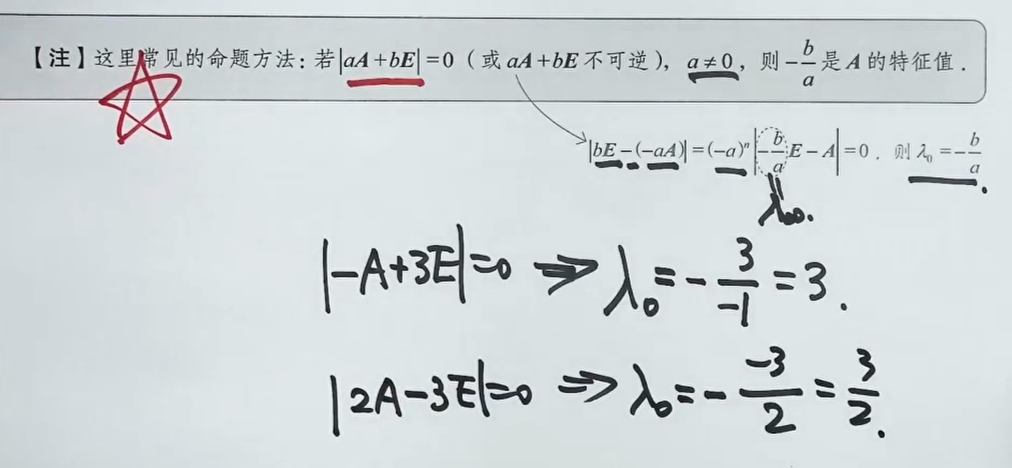 【注】这里常见的命题方法：若|aA+bE|=0（或aA+bE不可逆），a≠0，则-b/a是A的特征值．
|bE-(-aA)|=(-a)ⁿ|-b/a E-A|=0．则λ₀=-b/a
λ₀.
|-A+3E|=0 ⇒ λ₀=-3/-1=3.
|2A-3E|=0 ⇒ λ₀=- -3/2=3/2.